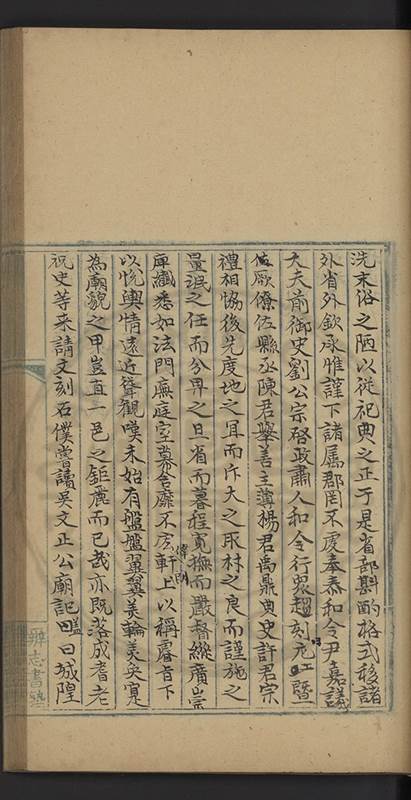 洗末俗之陋以從祀典之正于是省部斟酌格式移諸
外省外欽承惟謹下諸属郡罔不虔奉泰和令尹嘉議
大夫前御史劉公宗啓政肅人和令行衆趨刻克
厥僚佐縣丞陳君舉善主簿楊君禹鼎典史許君宗
禮相恊後先度地之宜而斥大之取材之良而謹施之
量泯之任而分畀之旦省而暮程寬撫而嚴督縱廣崇
庳纖悉如法門廡庭室靡不偉朗軒上以稱睿旨下
以悦輿情遠近聳觀嘆未始有盤盤翼翼美輪美奐寔
為廟貌之甲豈直一邑之鉅麗而已哉亦既落成耆老
祝史等来請文刻石僕嘗讀吳文正公廟記曰城隍
雜志書塾